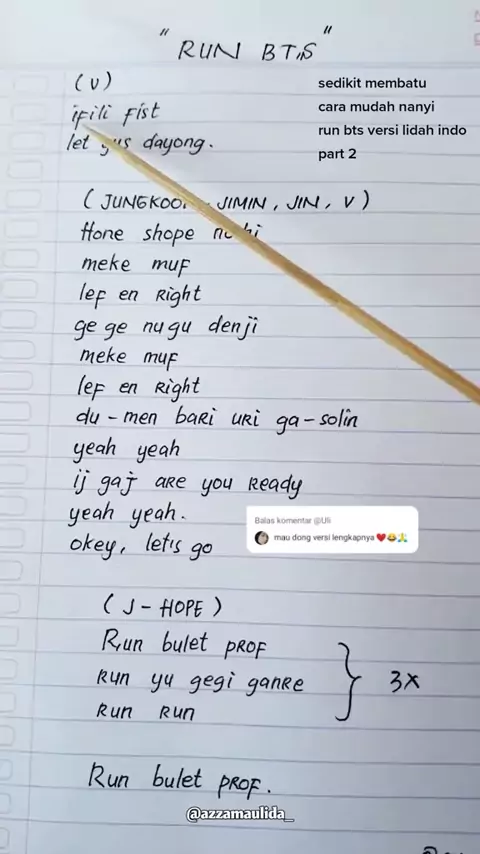 " RUN BTS "
sedikit membatu
cara mudah nanyi
run bts versi lidah indo
part 2
(V)
ifili fist
let gus dayong.
(JUNGKOOK, JIMIN, JIN, V)
Hone shope
meke muf
lef en Right
ge ge nugu denji
meke muf
lef en Right
du-men bari uri ga-solin
yeah yeah
ij gaj are you Ready
yeah yeah.
okey, let's go
Balas komentar @Uli
mau dong versi lengkapnya ❤️😂🙏
(J-HOPE)
Run bulet prof
Run yu gegi ganre
Run Run
3x
Run bulet prof.
@azzamaulida_